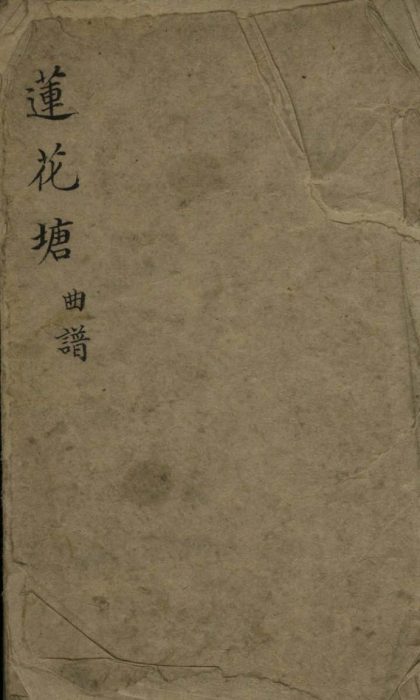 蓮花塘
曲譜